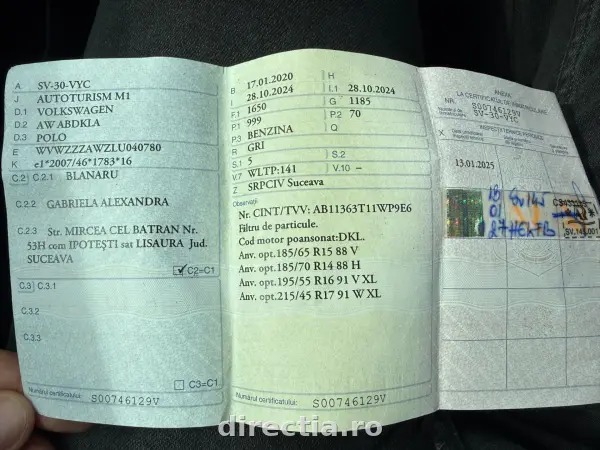 A SV-30-VYC
J AUTOTURISM M1
D.1 VOLKSWAGEN
D.2 AW ABDKLA
D.3 POLO
E WVWZZZAWZLU040780
K e1*2007/46*1783*16
C.2 C2.1 BLANARU
C.2.2 GABRIELA ALEXANDRA
C.2.3 Str. MIRCEA CEL BATRAN Nr.
53H com IPOTESTI sat LISAURA Jud.
SUCEAVA
C2=C1
C.3 C.3.1
C.3.2
C.3.3
C3=C1
Numărul certificatului: S00746129V
B 17.01.2020 H
I 28.10.2024 I.1 28.10.2024
F.1 1650 G 1185
P.1 999 P.2 70
P.3 BENZINA Q
R GRI
S.1 5 S.2
V.7 WLTP:141 V.10 –
Z SRPCIV Suceava
Observații
Nr. CINT/TVV: AB11363T11WP9E6
Filtru de particule.
Cod motor poansonat:DKL.
Anv. opt.185/65 R15 88 V
Anv. opt.185/70 R14 88 H
Anv. opt.195/55 R16 91 V XL
Anv. opt.215/45 R17 91 W XL
Numărul certificatului: S00746129V
ANEXA
LA CERTIFICATUL DE ÎNMATRICULARE
NR. S00746129V
SV-30-VYC
X
INSPECȚII TEHNICE PERIODICE
13.01.2025
18
01
27
SV.145.001
directia.ro